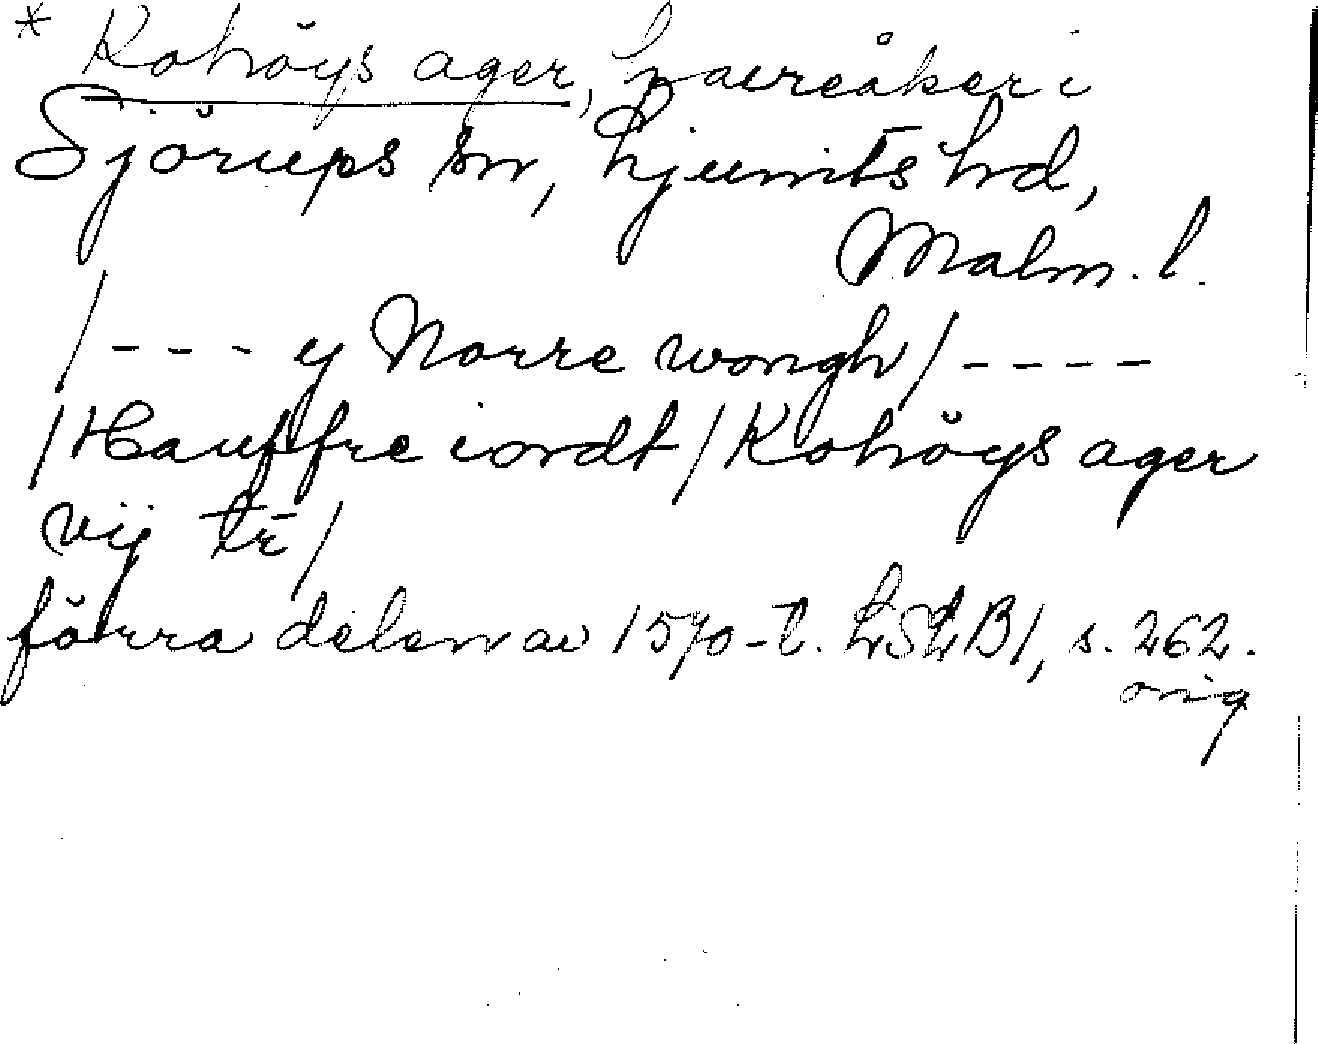 * Kohöys ager, havreåker i
Sjörups sn, Ljunits hd,
Malm. l.
/ - - - y Norre wongh / - - - -
/ Hauffre iordt / Kohöys ager
vij tr̄ /
förra delen av 1570-t. LSLB1, s. 262.
orig